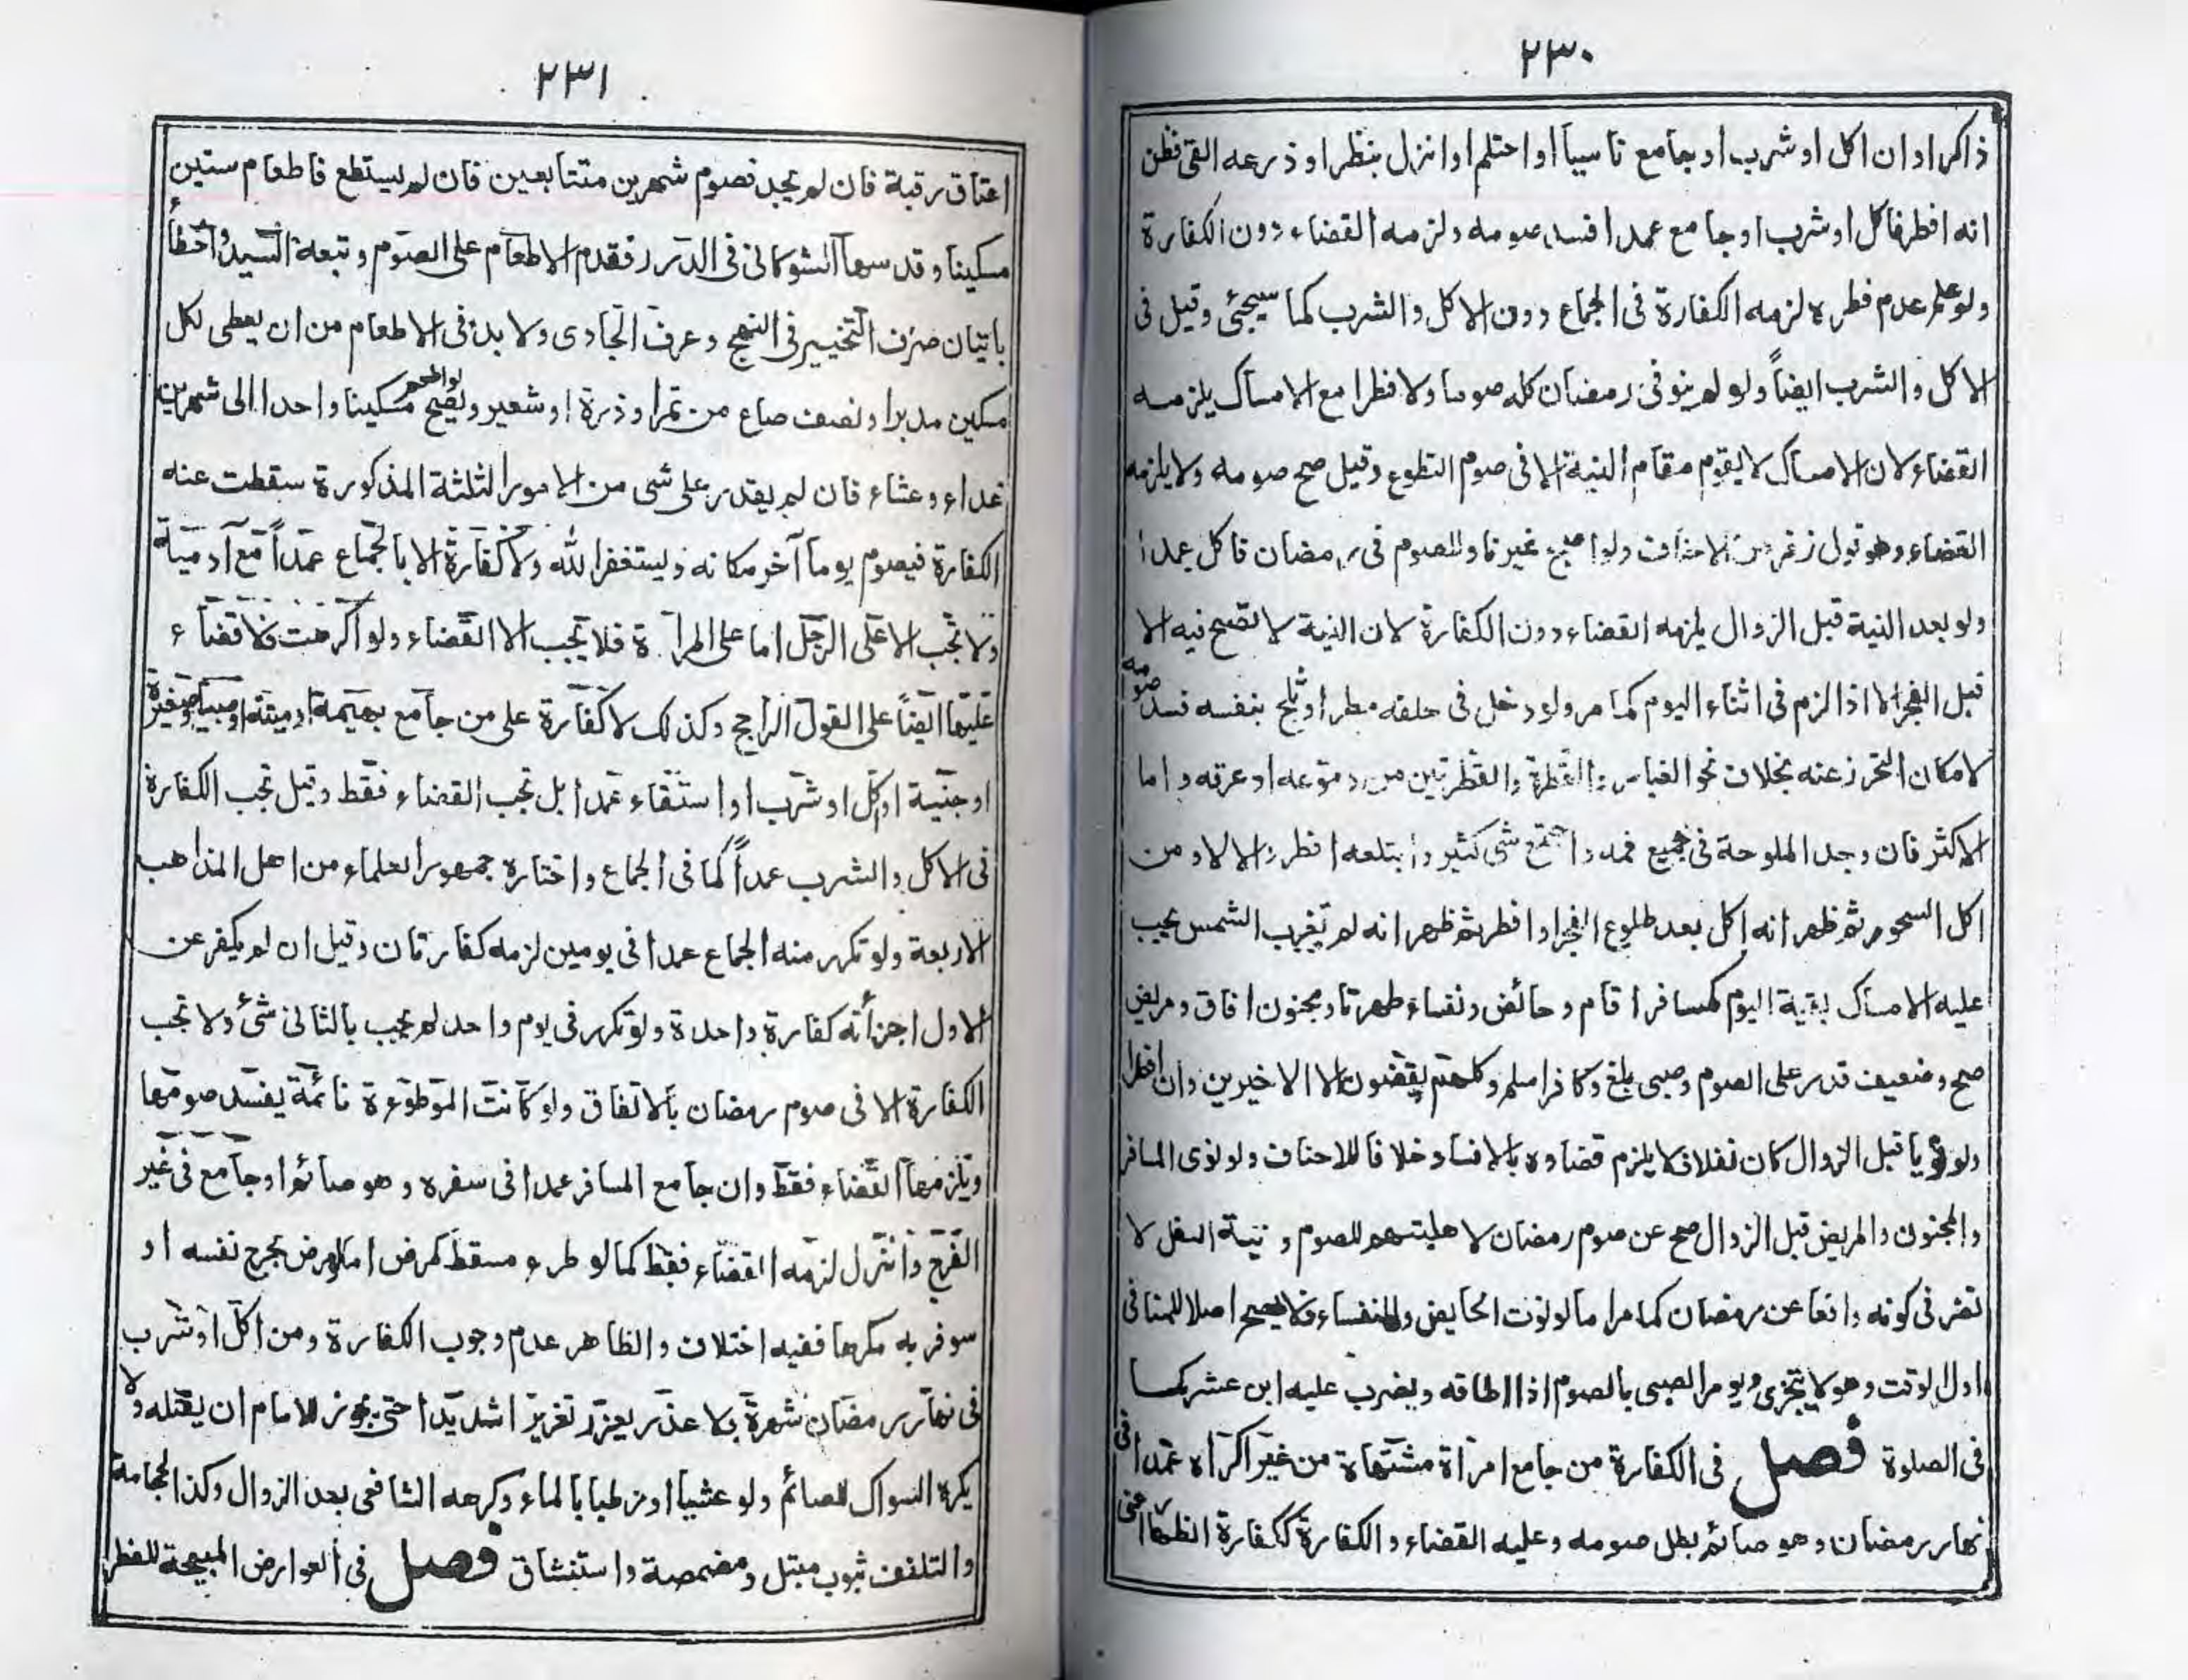 ٢٣٠
ذاكرا وان اكل او شرب او جامع ناسيا او احتلم او انزل بنظر او ذرعه القئ فظن
انه افطر فاكل او شرب او جامع عمدا فسد صومه ولزمه القضاء دون الكفارة
ولو علم عدم فطره لزمه الكفارة فى الجماع دون الاكل والشرب كما سيجئ وقيل فى
الاكل والشرب ايضاً ولو لم ينو فى رمضان كله صوما ولا فطرا مع الامساك يلزمه
القضاء لان الامساك لا يقوم مقام النية الا فى صوم التطوع وقيل صح صومه ولا يلزمه
القضاء وهو قول زفر من الاحناف ولو اصبح غير ناو للصوم فى رمضان فاكل عمدا
ولو بعد النية قبل الزوال يلزمه القضاء دون الكفارة لان النية لا تصح فيه الا
قبل الفجر الا اذا لزم فى اثناء اليوم كما مر ولو دخل فى حلقه مطر او ثلج بنفسه فسد صومه
لامكان التحرز عنه بخلاف نحو الغبار والقطرة والقطرتين من دموعه او عرقه واما
الاكثر فان وجد الملوحة فى جميع فمه واجتمع شئ كثير وابتلعه افطر والا لا ومن
اكل السحور ثم ظهر انه اكل بعد طلوع الفجر او افطر ثم ظهر انه لم تغرب الشمس يجب
عليه الامساك بقية اليوم كمسافر اقام وحائض ونفساء طهرتا ومجنون افاق ومريض
صح وضعيف قدر على الصوم وصبى بلغ وكافر اسلم وكلهم يقضون الا الاخيرين وان افطرا
ولو نويا قبل الزوال كان نفلا فلا يلزم قضاوه بالافساد خلافا للاحناف ولو نوى المسافر
والمجنون والمريض قبل الزوال صح عن صوم رمضان لاهليتهم للصوم ونية النفل لا
تضر فى كونه واقعا عن رمضان كما مر اما لو نوت الحايض والنفساء فلا يصح اصلا للمنافى
اول الوقت وهو لا يتجزى ويومر الصبى بالصوم اذا اطاقه ويضرب عليه ابن عشر كما
فى الصلوة فصل فى الكفارة من جامع امرأة مشتهاة من غير اكراه عمدا فى
نهار رمضان وهو صائم بطل صومه وعليه القضاء والكفارة ككفارة الظهار اعنى
٢٣١
اعتاق رقبة فان لم يجد فصوم شهرين متتابعين فان لم يستطع فاطعام ستين
مسكينا وقد سها الشوكانى فى الدرر فقدم الاطعام على الصوم وتبعه السيد واخطأ
باتيان حرف التخيير فى النهج وعرف الجادى ولا بد فى الاطعام من ان يعطى لكل
مسكين مد برا ونصف صاع من تمر او ذرة او شعير ويصح لو اطعم مسكينا واحدا الى شهرين
غداء وعشاء فان لم يقدر على شى من الامور الثلثة المذكورة سقطت عنه
الكفارة فيصوم يوما آخر مكانه ويستغفر الله ولا كفارة الا بالجماع عمداً مع آدمية
ولا تجب الا على الرجل اما على المرأة فلا يجب الا القضاء ولو اكرهت فلا قضاء
عليها ايضاً على القول الراجح وكذلك لا كفارة على من جامع بهيمة او ميتة او صبيا او صغيرة
او جنية او اكل او شرب او استقاء عمدا بل تجب القضاء فقط وقيل تجب الكفارة
فى الاكل والشرب عمداً كما فى الجماع واختاره جمهور العلماء من اهل المذاهب
الاربعة ولو تكرر منه الجماع عمدا فى يومين لزمه كفارتان وقيل ان لم يكفر عن
الاول اجزأته كفارة واحدة ولو تكرر فى يوم واحد لم يجب بالثانى شئ ولا تجب
الكفارة الا فى صوم رمضان بالاتفاق ولو كانت الموطوءة نائمة يفسد صومها
ويلزمها القضاء فقط وان جامع المسافر عمدا فى سفره وهو صائم او جامع فى غير
الفرج وانزل لزمه القضاء فقط كما لو طرء مسقط كمرض اما لو مرض بجرح نفسه او
سوفر به مكرها ففيه اختلاف والظاهر عدم وجوب الكفارة ومن اكل او شرب
فى نهار رمضان شهرة بلا عذر يعزر تعزيرا شديدا حتى يجوز للامام ان يقتله ولا
يكره السواك للصائم ولو عشيا او رطبا بالماء وكرهه الشافعى بعد الزوال وكذا الحجامة
والتلفف بثوب مبتل ومضمضة واستنشاق فصل فى العوارض المبيحة للفطر